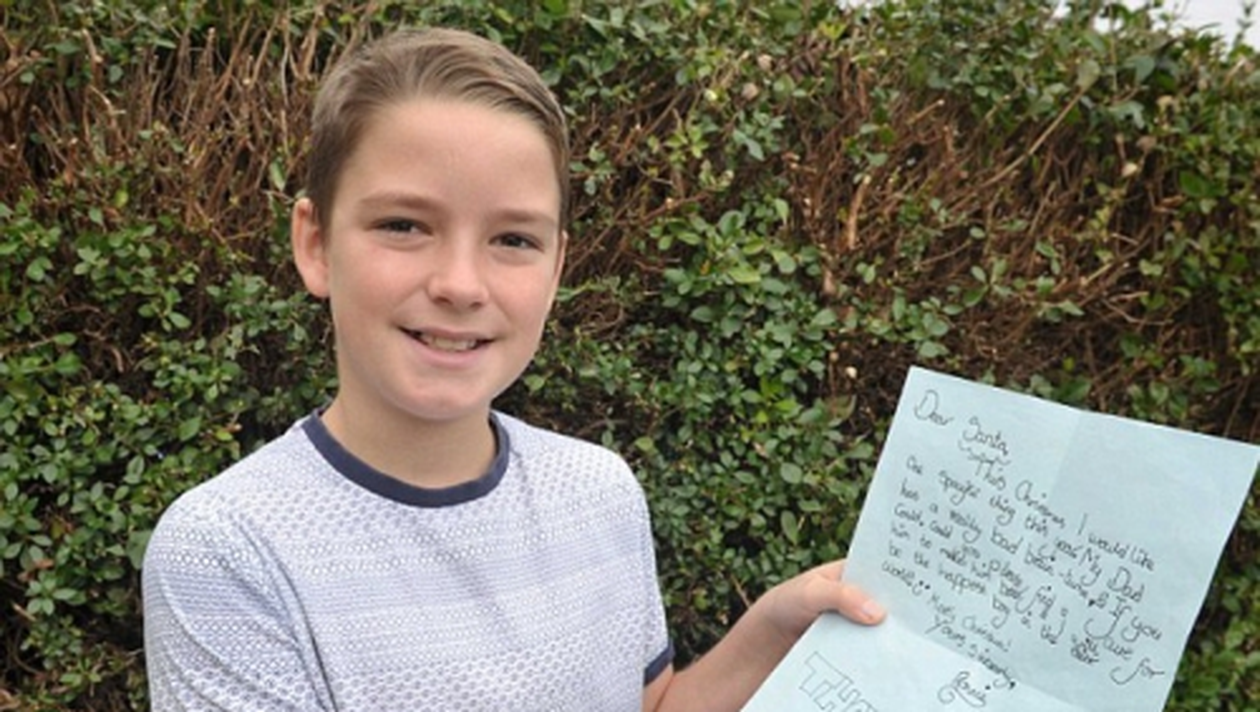 Dear Santa,
This Christmas I would like
one specific thing this year. My Dad
has a really bad brain-
could, could you please find a cure for
him to make him I'd
be the happiest boy in the
world. Merry Christmas!
Yours Sincerely,
THA